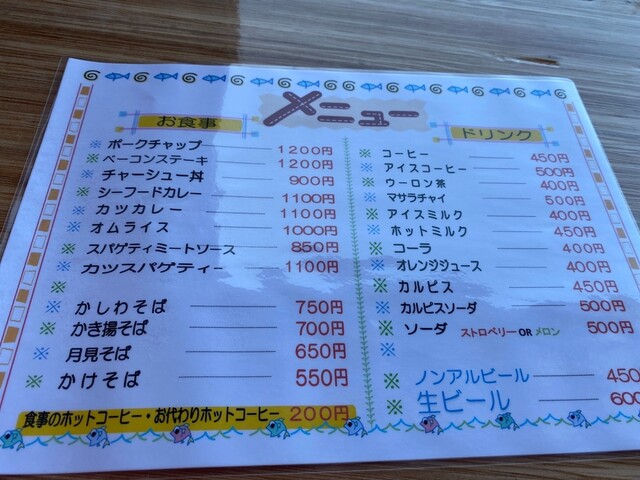 メニュー
お食事
※ ポークチャップ 1200円
※ ベーコンステーキ 1200円
※ チャーシュー丼 900円
※ シーフードカレー 1100円
※ カツカレー 1100円
※ オムライス 1000円
※ スパゲティミートソース 850円
※ カツスパゲティー 1100円
※
※ かしわそば 750円
※ かき揚そば 700円
※ 月見そば 650円
※ かけそば 550円
食事のホットコーヒー・お代わりホットコーヒー 200円
ドリンク
※ コーヒー 450円
※ アイスコーヒー 500円
※ ウーロン茶 400円
※ マサラチャイ 500円
※ アイスミルク 400円
※ ホットミルク 450円
※ コーラ 400円
※ オレンジジュース 400円
※ カルピス 450円
※ カルピスソーダ 500円
※ ソーダ ストロベリーORメロン 500円
※
※ ノンアルビール 450
※ 生ビール 600